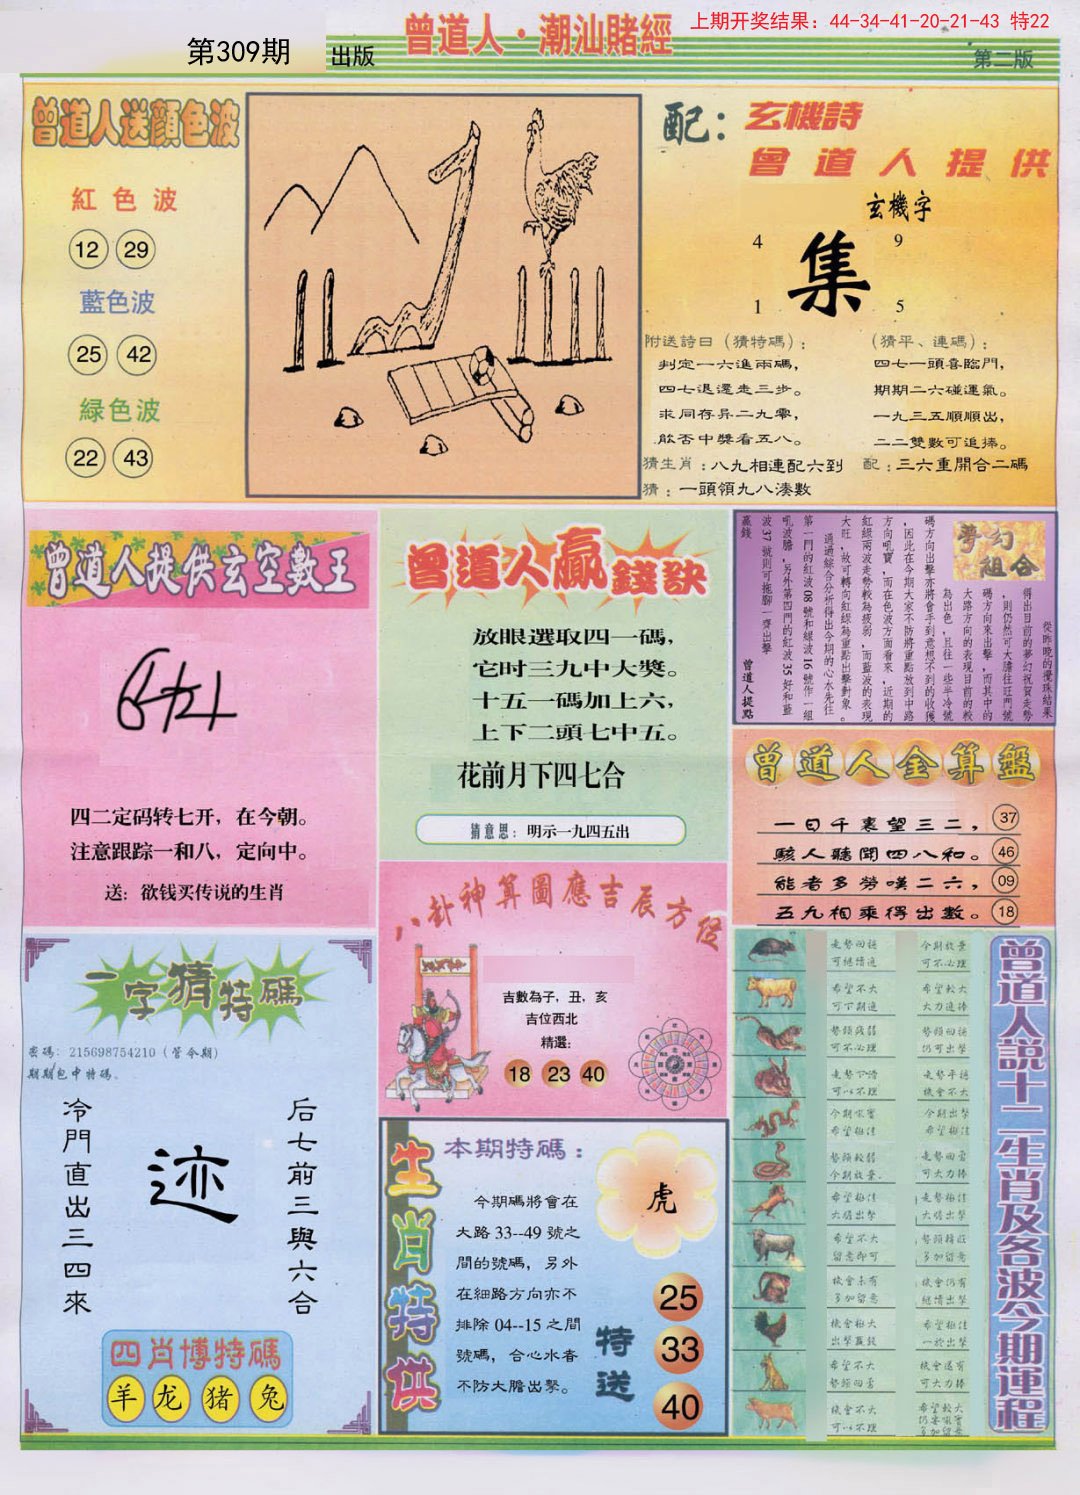 上期开奖结果：44-34-41-20-21-43 特22
第309期
出版
曾道人·潮汕賭經
第二版
曾道人送顔色波
紅色波
12 29
藍色波
25 42
緑色波
22 43
配：玄機詩
曾道人提供
玄機字
4 9
集
1 5
附送詩曰（猜特碼）：
判定一六進兩碼，
四七退還走三步。
求同存异二九零，
能否中獎看五八。
（猜平、連碼）：
四七一頭喜臨門，
期期二六碰運氣。
一九三五順順出，
二二雙數可追捧。
猜生肖：八九相連配六到
配：三六重開合二碼
猜：一頭領九八湊數
曾道人提供玄空數王
四二定码转七开，在今朝。
注意跟踪一和八，定向中。
送：欲钱买传说的生肖
曾道人贏錢訣
放眼選取四一碼，
它时三九中大獎。
十五一碼加上六，
上下二頭七中五。
花前月下四七合
猜意思：明示一九四五出
夢幻組合
從昨晚的攪珠結果
得出目前的夢幻祝賀走勢
，則仍然可大膽往旺門號
碼方向來出擊，而其中的
大路方向的表現目前的較
為出色，且往一些半冷號
碼方向出擊亦將會手到意想不到的收獲
，因此在今期大家不防將重點放到中路
方向吼寶，而在色波方面看來，近期的
紅綠兩波走勢較為疲弱，而藍波的表現
大旺，故可轉向紅綠為重點出擊對象。
通過綜合分析得出今期的心水先往
第一門的紅波08號和綠波16號作一組
吼波膽，另外第四門的紅波35好和藍
波37號則可拖腳一齊出擊
贏錢
曾道人提點
曾道人全算盤
一日千裏望三二，37
駭人聽聞四八和。46
能者多勞嘆二六，09
五九相乘得出數。18
八卦神算圖應吉辰方位
吉數為子，丑，亥
吉位西北
精選：
18 23 40
一字猜特碼
密碼：215698754210（管令期）
期期包中特碼、
冷門直出三四來
迹
后七前三與六合
四肖博特碼
羊 龙 猪 兔
生肖特供
本期特碼：
今期碼將會在
大路33--49號之
間的號碼，另外
在細路方向亦不
排除04--15之間
號碼，合心水春
不防大膽出擊。
虎
特送
25
33
40
曾道人說十二生肖及各波今期運程